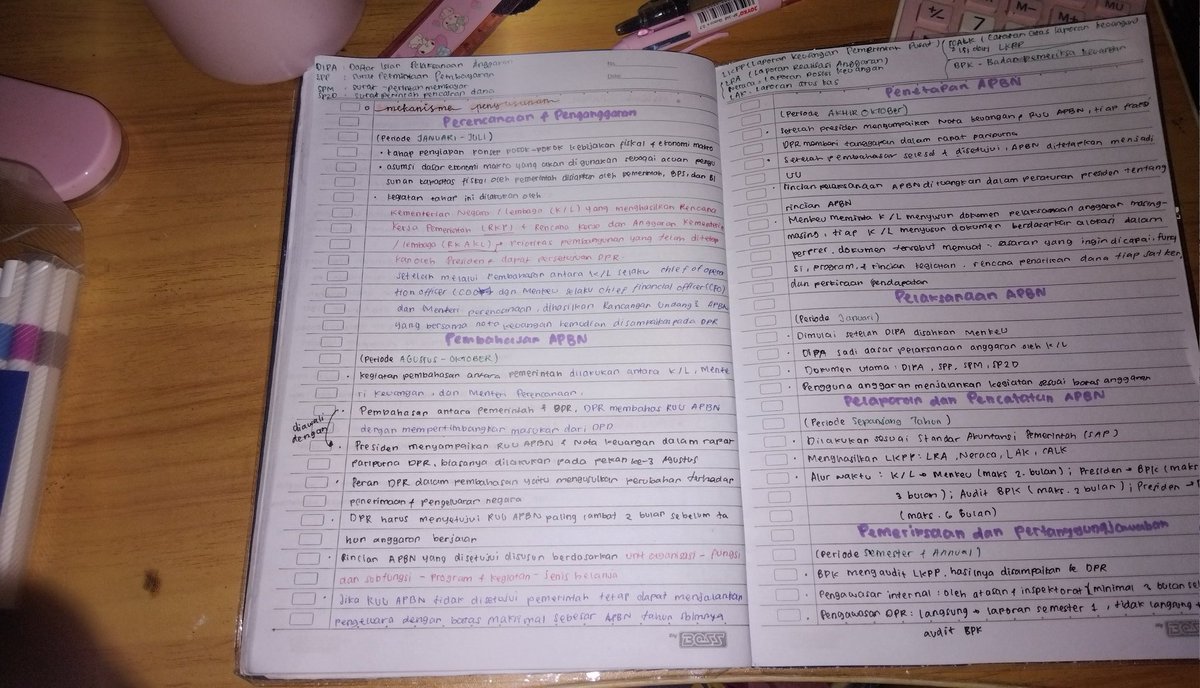 DIPA : Daftar Isian Pelaksanaan Anggaran
SPP : Surat Permintaan Pembayaran
SPM : Surat perintah membayar
SP2D : Surat perintah pencairan dana
No
Date
mekanisme penyusunan
Perencanaan & Penganggaran
(Periode JANUARI - JULI)
• tahap penyiapan konsep pokok-pokok kebijakan fiskal & ekonomi makro
• asumsi dasar ekonomi makro yang akan digunakan sebagai acuan penyu
sunan kapasitas fiskal oleh pemerintah disiapkan oleh pemerintah, BPS, dan BI
• kegiatan tahap ini dilakukan oleh
Kementerian Negara / lembaga (K/L) yang menghasilkan Rencana
Kerja Pemerintah (RKP) & Rencana Kerja dan Anggaran Kementeri
/ lembaga (RKAKL) → prioritas pembangunan yang telah ditetap
kan oleh Presiden & dapat persetujuan DPR
setelah melalui pembahasan antara K/L selaku chief of opera
tion officer (COO) dgn Menkeu selaku chief financial officer (CFO)
dan Menteri perencanaan, dihasilkan Rancangan Undang² APBN
yang bersama nota keuangan kemudian disampaikan pada DPR
Pembahasan APBN
(Periode AGUSTUS - OKTOBER)
• kegiatan pembahasan antara pemerintah dilakukan antara K/L, Mente
ri keuangan, dan Menteri Perencanaan.
diawali dengan
• Pembahasan antara pemerintah & DPR, DPR membahas RUU APBN
dengan mempertimbangkan masukan dari DPD
• Presiden menyampaikan RUU APBN & Nota keuangan dalam rapat
paripurna DPR, biasanya dilakukan pada pekan ke-3 Agustus
• Peran DPR dalam pembahasan yaitu mengusulkan perubahan terhadap
penerimaan & pengeluaran negara
• DPR harus menyetujui RUU APBN paling lambat 2 bulan sebelum ta
hun anggaran berjalan
• Rincian APBN yang disetujui disusun berdasarkan unit organisasi - fungsi
dan subfungsi - program & kegiatan - jenis belanja
• Jika RUU APBN tidak disetujui pemerintah tetap dapat menjalankan
pengeluara dengan batas maksimal sebesar APBN tahun sblmnya
by BOSS
LKPP (Laporan keuangan Pemerintah Pusat)
LRA (Laporan Realisasi Anggaran)
Neraca : Laporan posisi keuangan
LAK : Laporan arus kas
CALK (Catatan atas laporan keuangan)
isi dari LKPP
BPK - Badan pemeriksa keuangan
Penetapan APBN
(Periode AKHIR OKTOBER)
• Setelah presiden mengumpaikan Nota keuangan & RUU APBN, tiap fraksi
DPR memberi tanggapan dalam rapat paripurna
• Setelah pembahasan selesai & disetujui, APBN ditetapkan menjadi
UU
• Rincian pelaksanaan APBN dituangkan dalam peraturan presiden tentang
rincian APBN
• Menkeu meminta K/L menyusun dokumen pelaksanaan anggaran masing-
masing, tiap K/L menyusun dokumen berdasarkan alokasi dalam
perpres. dokumen tersebut memuat : sasaran yang ingin dicapai, fung
si, program, & rincian kegiatan. rencana penarikan dana tiap satker,
dan perkiraan pendapatan
Pelaksanaan APBN
(Periode Januari)
• Dimulai setelah DIPA disahkan Menkeu
• DIPA jadi dasar pelaksanaan anggaran oleh K/L
• Dokumen utama : DIPA, SPP, SPM, SP2D
• Pengguna anggaran menjalankan kegiatan sesuai batas anggaran
Pelaporan dan Pencatatan APBN
(Periode Sepanjang Tahun)
• Dilakukan sesuai Standar Akuntansi Pemerintah (SAP)
• Menghasilkan LKPP : LRA, Neraca, LAK, CALK
• Alur waktu : K/L → Menkeu (maks 2 bulan) ; Presiden → BPK (maks
3 bulan) ; Audit BPK (maks. 2 bulan) ; Presiden →
(maks. 6 Bulan)
Pemeriksaan dan Pertanggungjawaban
(Periode semester & Annual)
• BPK mengaudit LKPP, hasilnya disampaikan ke DPR
• Pengawasan internal : oleh atasan & inspektorat (minimal 2 bulan
• Pengawasan DPR : langsung → laporan semester 1, tidak langsung →
audit BPK
by BOSS
7
M-
M+
MU
+/-